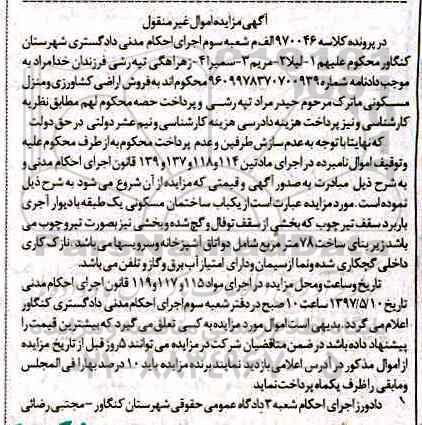 آگهی مزایده اموال غیر منقول
در پرونده کلاسه ۹۷۰۰۴۶ الف م شعبه سوم اجرای احکام مدنی دادگستری شهرستان
کنگاور محکوم علیهم ۱-لیلا ۲-مریم ۳-سمیرا ۴-زهرا همگی تپه رشی فرزندان خدامراد به
موجب دادنامه شماره ۹۶۰۹۹۷۸۳۷۰۷۰۰۹۳۹ محکوم اند به فروش اراضی کشاورزی و منزل
مسکونی ماترک مرحوم حیدر مراد تپه رشی و پرداخت حصه محکوم لهم مطابق نظریه
کارشناسی و نیز پرداخت هزینه دادرسی هزینه کارشناسی و نیم عشر دولتی در حق دولت
که نهایتا با توجه به عدم سازش طرفین و عدم پرداخت محکوم به از طرف محکوم علیه
و توقیف اموال نامبرده در اجرای مادتین ۱۱۴ و ۱۱۸ و ۱۳۷ و ۱۳۹ قانون اجرای احکام مدنی و
به شرح ذیل مبادرت به صدور آگهی و قیمتی که مزایده از آن شروع می شود به شرح ذیل
نموده است. مورد مزایده عبارت است از یکباب ساختمان مسکونی یک طبقه با دیوار آجری
باربرد سقف تیر چوب که بخشی از سقف توفال و گچ شده و بخشی نیز بصورت تیر و چوب می
باشد زیر بنای ساخت ۷۸ متر مربع شامل دو اتاق آشپزخانه و سرویسها می باشد. نازک کاری
داخلی گچکاری شده و نما از سیمان و دارای امتیاز آب برق و گاز و تلفن می باشد.
تاریخ وساعت ومحل مزایده در اجرای مواد ۱۱۵ و ۱۱۷ و ۱۱۹ قانون اجرای احکام مدنی
تاریخ ۱۳۹۷/۵/۱۰ ساعت ۱۰ صبح در دفتر شعبه سوم اجرای احکام مدنی دادگستری کنگاور
اعلام می گردد. بدیهی است اموال مورد مزایده به کسی تعلق می گیرد که بیشترین قیمت را
پیشنهاد داده باشد در ضمن متقاضیان شرکت در مزایده می توانند ۵ روز قبل از تاریخ مزایده
از اموال مذکور در آدرس اعلامی بازدید نمایند برنده مزایده باید ۱۰ درصد بها را فی المجلس
و مابقی را ظرف یکماه پرداخت نماید
دادورز اجرای احکام شعبه ۳ دادگاه عمومی حقوقی شهرستان کنگاور - مجتبی رضائی